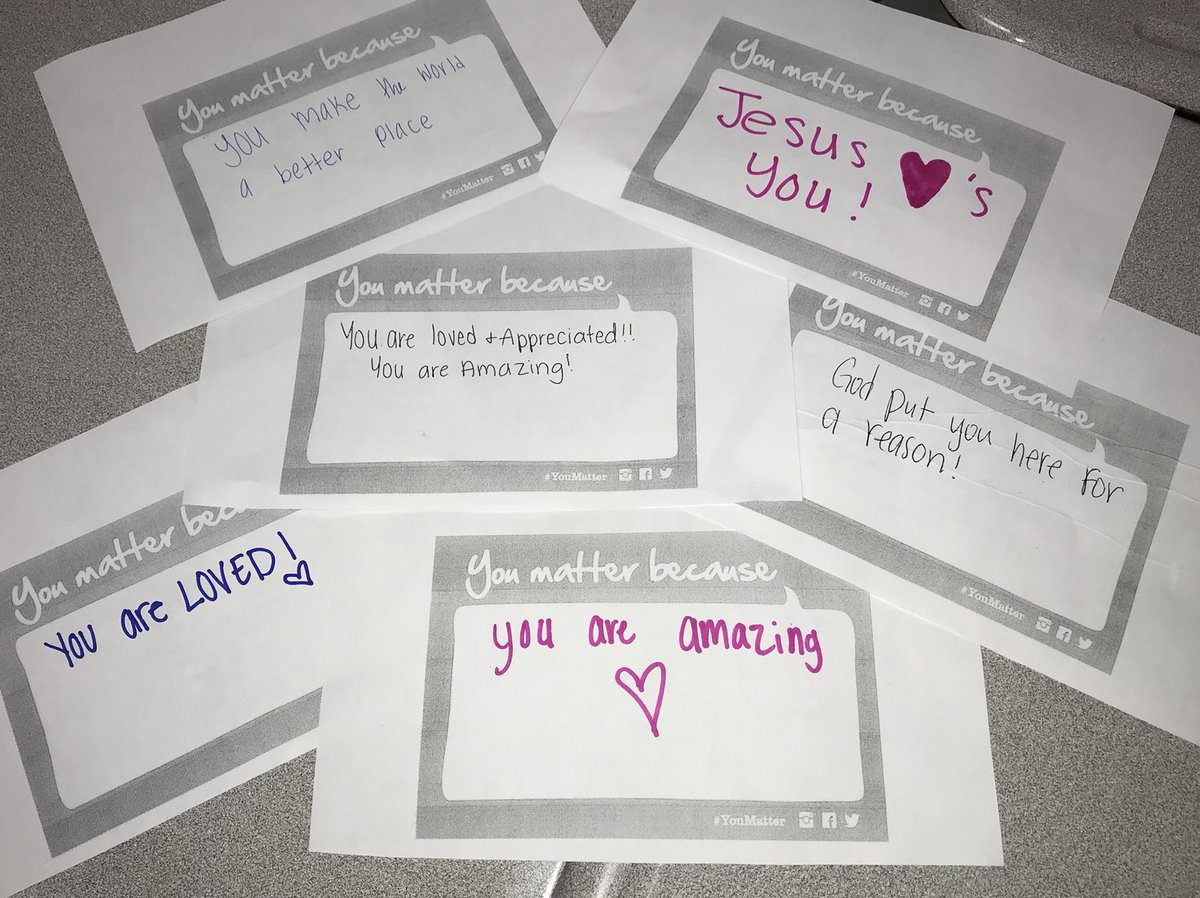 You matter because
you make the world
a better place
#YouMatter
You matter because
Jesus ♥'s
you!
#YouMatter
You matter because
You are loved + Appreciated!!
You are Amazing!
#YouMatter
You matter because
God put you here for
a reason!
#YouMatter
You matter bec
You are LOVED!
You matter because
you are amazing
#YouMatter